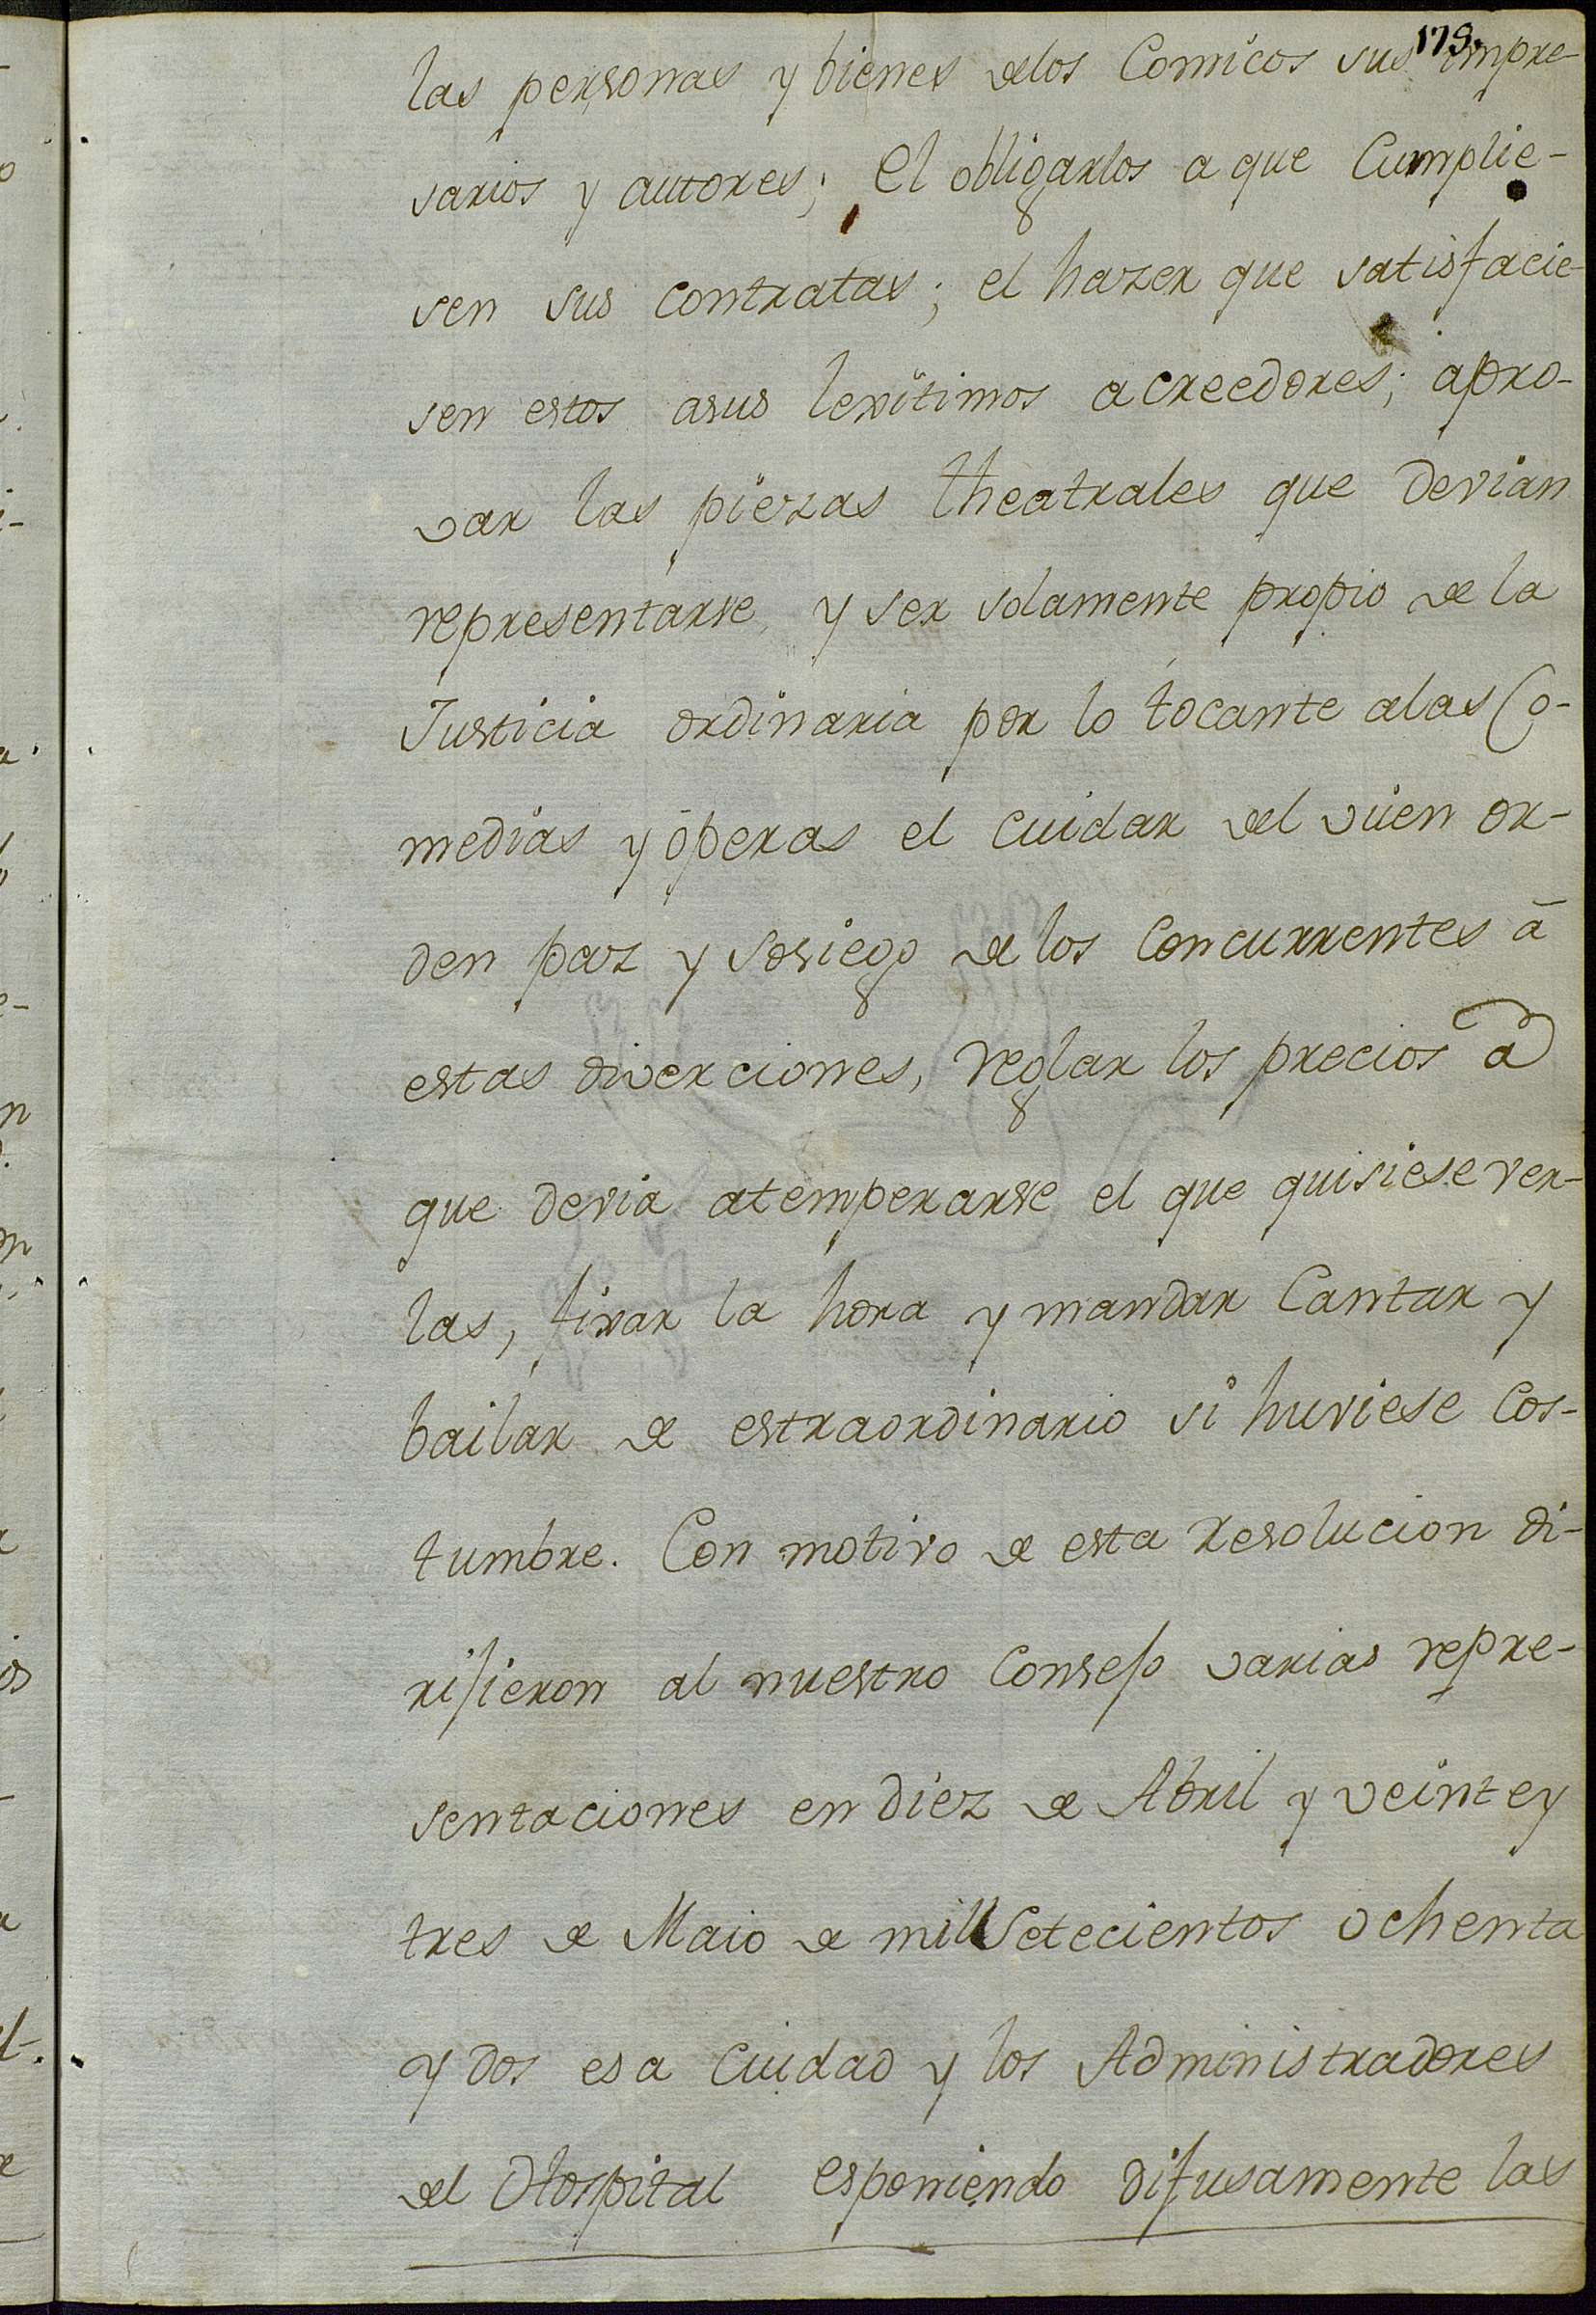 178.
las personas y bienes delos Comicos sus impre-
sarios y autores; El obligarlos a que Cumplie-
sen sus contratas; el hazer que satisfacie-
sen estos asus lexitimos acreedores; apro-
var las piezas theatrales que devian
representarse, y ser solamente propio de la
Justicia ordinaria por lo tocante alas Co-
medias y óperas el cuidar del vuen or-
den paz y sosiego de los Concurrentes á
estas diverciones, reglar los precios a
que devia atemperarse el que quisiese ver-
las, fixar la hora y mandar Cantar y
bailar de estraordinario si huviese Cos-
tumbre. Con motivo de esta Resolucion di-
rijieron al nuestro Consejo varias repre-
sentaciones en diez de Abril y veinte y
tres de Maio de mill Setecientos ochenta
y dos esa Ciudad y los Administradores
del Hospital esponiendo difusamente las